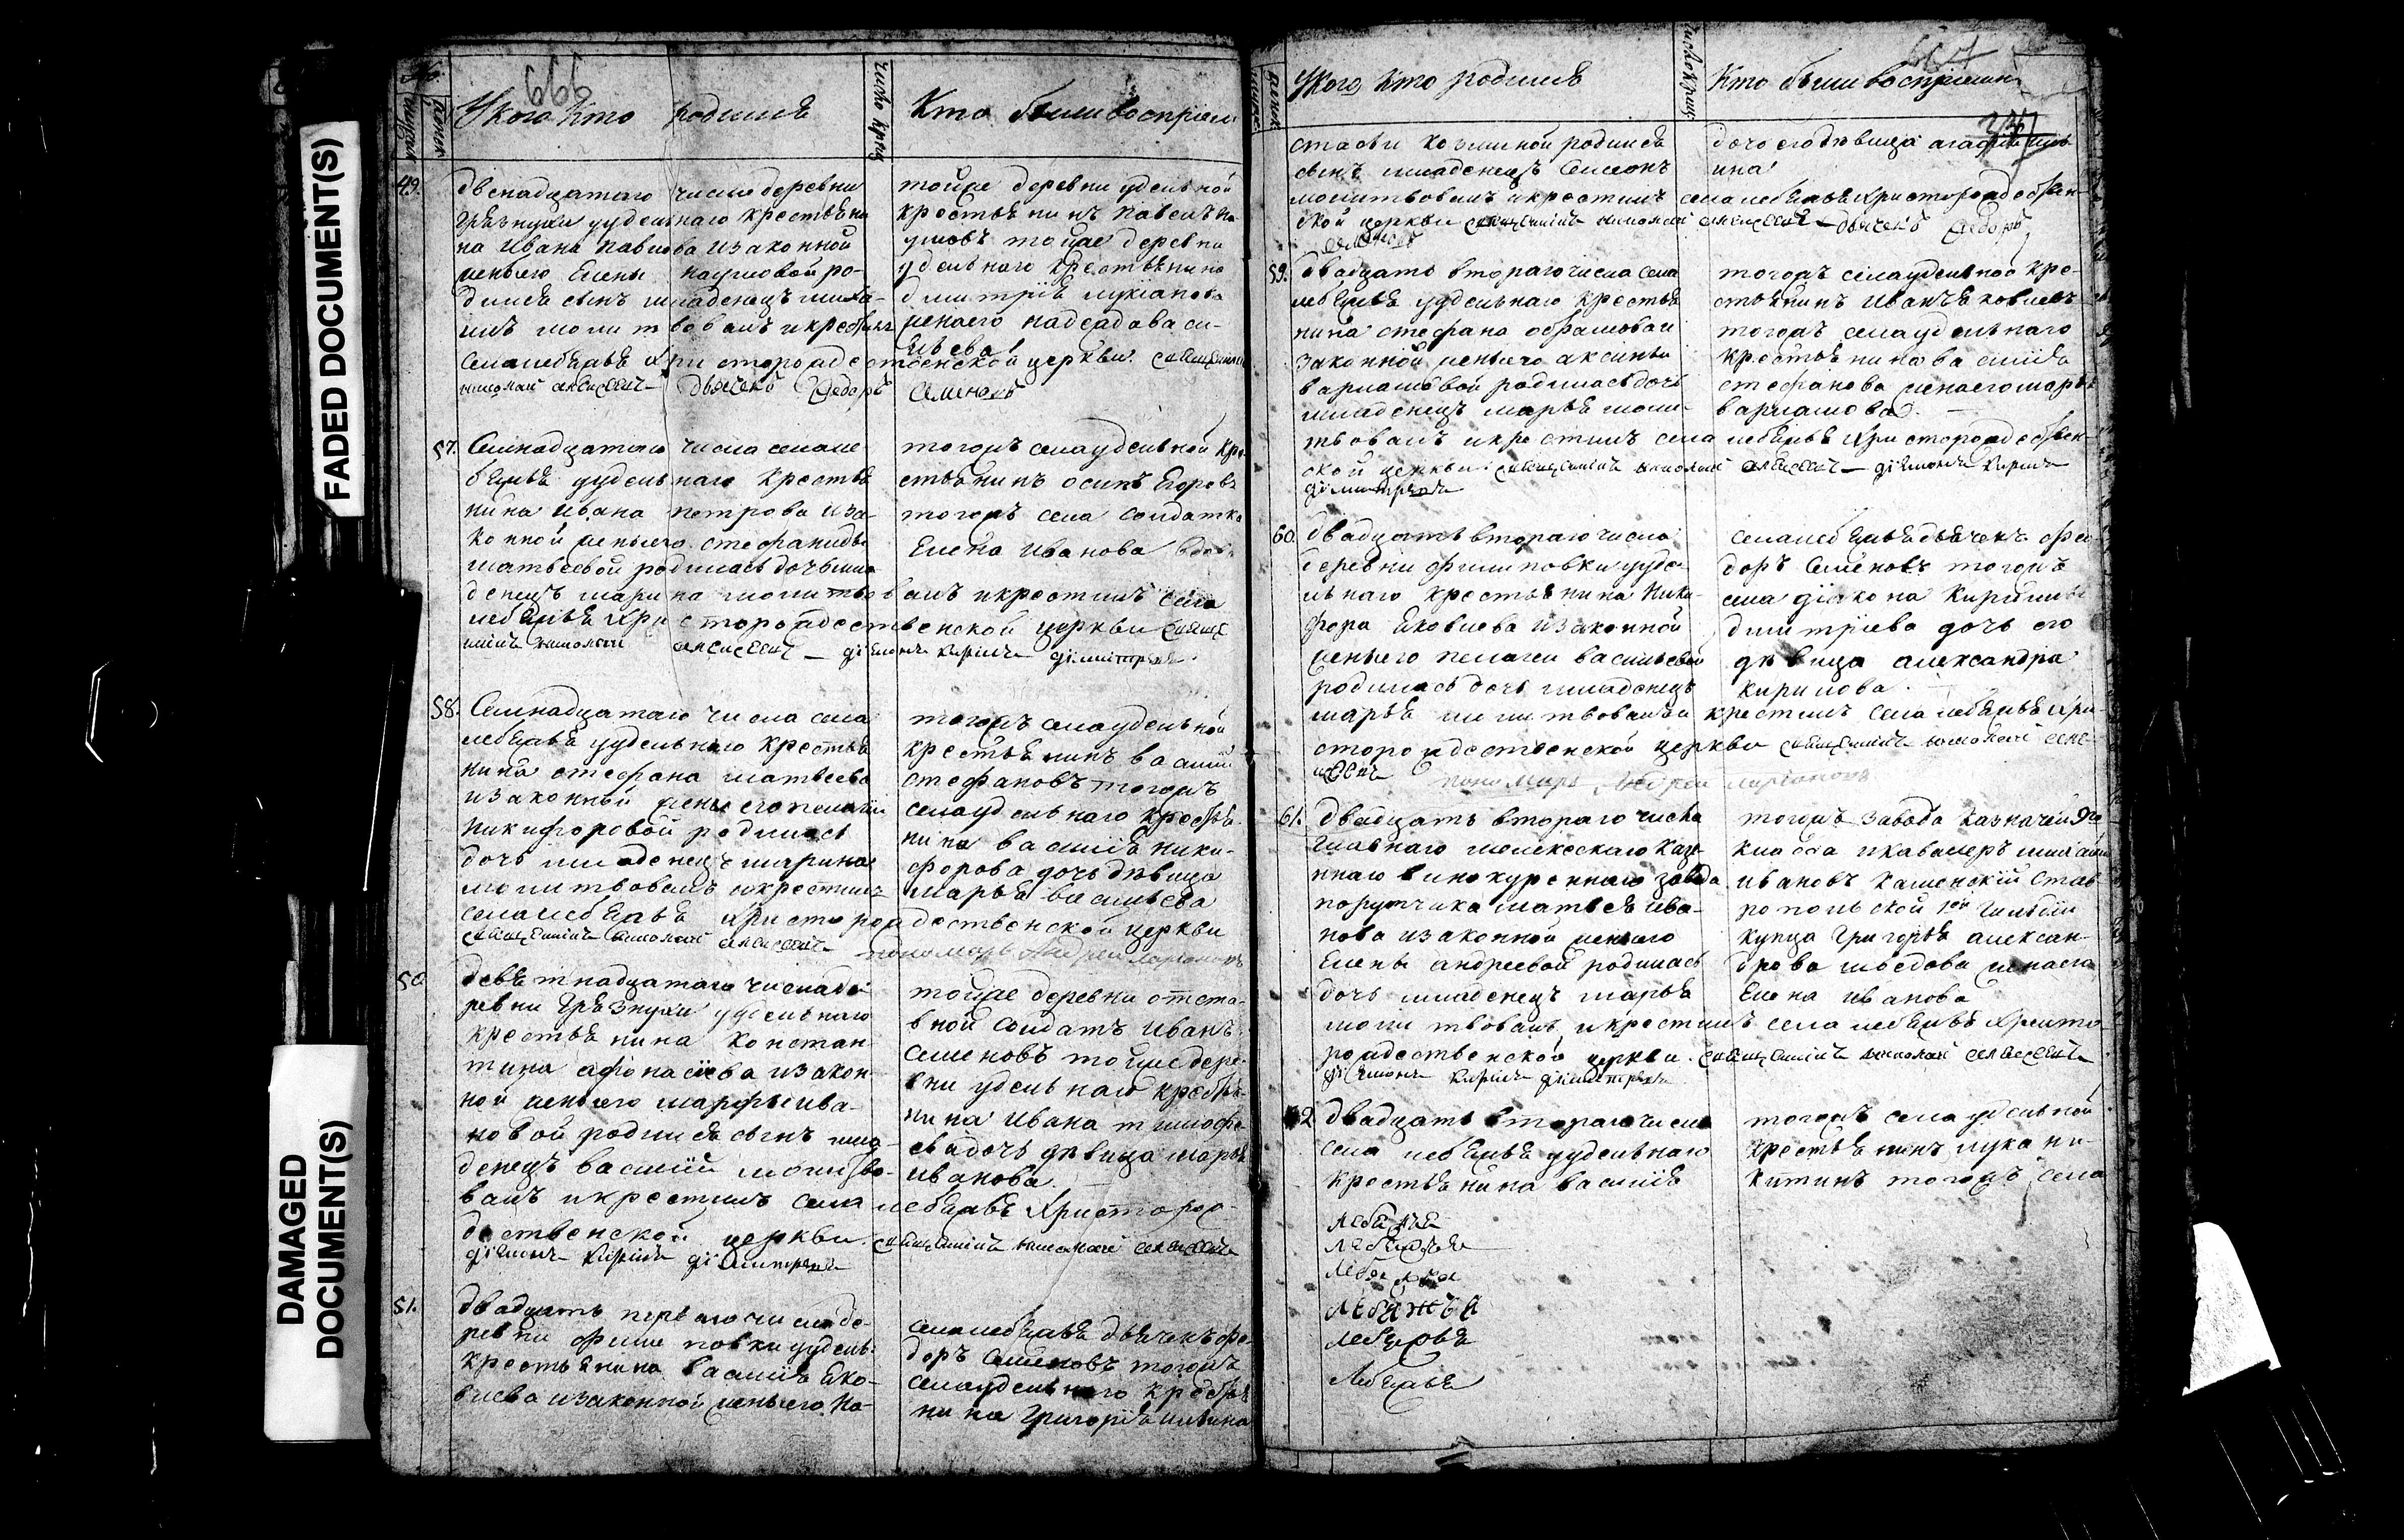 FADED DOCUMENT(S)
DAMAGED DOCUMENT(S)
666
У кого кто родился
Число крещ
Кто были восприем
49.
двенадцатаго числа деревни
Грязнухи удельнаго крестьяни
на Ивана Павлова изаконной
жены его Елены Наумовой ро-
дился сынъ младенецъ Миха-
илъ молитвовалъ и крестилъ
села Лебяжья Христорождественской церкви священникъ
Николай Алексеевъ дьячекъ Федоръ Семеновъ
тойже деревни удельной
крестьянинъ Павелъ На
умовъ тойже деревни
удельнаго крестьянина
Димитрія Лукіанова
жена его Надежда Васи-
льева
57.
Семнадцатаго числа села Ле-
бяжья удельнаго крестья
нина Ивана Петрова иза-
конной жены его Стефаниды
Матвеевой родилась дочь мла-
денецъ Марина молитвовалъ и крестилъ села
Лебяжья Христорождественской церкви священ
никъ Николай Алексеевъ діаконъ Кирилъ Димитріевъ
тогожъ села удельной кре-
стьянинъ Осипъ Егоровъ
тогожъ села солдатка
Елена Иванова вдова
58.
Семнадцатаго числа села
Лебяжья удельнаго крестья
нина Стефана Матвеева
изаконной жены его Пелагіи
Никифоровой родилась
дочь младенецъ Марина
молитвовалъ и крестилъ
села Лебяжья Христорождественской церкви
священникъ Николай Алексеевъ пономарь Андрей Ларіоновъ
тогожъ села удельной
крестьянинъ Василій
Стефановъ тогожъ
села удельнаго крестья-
нина Василія Ники-
форова дочь девица
Марья Васильева
50
девятнадцатаго числа де
ревни Грязнухи удельнаго
крестьянина Констан
тина Афонасіева изакон
ной жены его Марфы Ива-
новой родился сынъ мла-
денецъ Василій молитво-
валъ и крестилъ села Лебяжья Христорож-
дественской церкви священникъ Николай Алексеевъ
діаконъ Кирилъ Димитріевъ
тойже деревни отста-
вной солдатъ Иванъ
Семеновъ тойже дере-
вни удельнаго крестья-
нина Ивана Тимофе
ева дочь девица Марья
Иванова.
51.
двадцать перваго числа де-
ревни Филиповки удель-
крестьянина Василія Яко-
влева изаконной жены его На-
села Лебяжья дьячекъ Фе-
доръ Семеновъ тогожъ
села удельнаго крестья
нина Григорія Ильина
667
347
У кого кто родился
Число крещ
Кто были восприемн
стасьи Козминой родился
сынъ младенецъ Симеонъ
молитвовалъ и крестилъ села Лебяжья Христорождествен-
ской церкви священникъ Николай Алексеевъ дьячекъ Федоръ
Семеновъ
дочь его девица Агафія Ильи
ина
59.
двадцать втораго числа села
Лебяжья удельнаго крестья
нина Стефана Абрамова и
законной жены его Аксиньи
Варламовой родилась дочь
младенецъ Марья моли-
твовалъ и крестилъ села Лебяжья Христорождествен-
ской церкви священникъ Николай Алексеевъ діаконъ Кирилъ
Димитріевъ
тогожъ села удельной кре-
стьянинъ Иванъ Яковлевъ
тогожъ села удельнаго
крестьянина Василія
Стефанова жена его Марья
Варламова.
60.
двадцать втораго числа
деревни Филиповки уде-
льнаго крестьянина Ники-
фора Яковлева изаконной
жены его Пелагеи Васильевой
родилась дочь младенецъ
Марья молитвовалъ и крестилъ села Лебяжья Хри-
сторождественской церкви священникъ Николай Алек-
сеевъ пономарь Андрей Ларіоновъ
села Лебяжья дьячекъ Фео
доръ Семеновъ тогожъ
села діякона Кирилы
Димитріева дочь его
девица Александра
Кирилова.
61.
двадцать втораго числа
Главнаго Мелекескаго казе
ннаго винокуреннаго завода
порутчика Матвея Ива-
нова изаконной жены его
Елены Андреевой родилась
дочь младенецъ Марья
молитвовалъ и крестилъ села Лебяжья Христо
рождественской церкви священникъ Николай Алексеевъ
діаконъ Кирилъ Димитріевъ
тогожъ завода казначей 9го
класса и кавалеръ Михаилъ
Ивановъ Каменскій Став-
ропольской 1ой гильдіи
купца Григорья Алексан-
дрова Шведова жена его
Елена Иванова
62
двадцать втораго числа
села Лебяжья удельнаго
крестьянина Василія
тогожъ села удельной
крестьянинъ Лука Ни-
китинъ тогожъ села
Лебяжья
Лебяжья
Лебяжья
Лебяжья
Лебяжья
Лебяжья